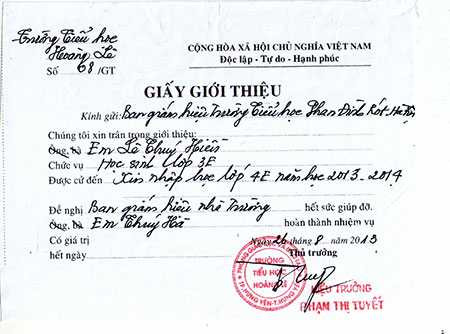 Trường Tiểu học
Hoàng Lê
Số 68/GT
CỘNG HÒA XÃ HỘI CHỦ NGHĨA VIỆT NAM
Độc lập - Tự do - Hạnh phúc
GIẤY GIỚI THIỆU
Kính gửi: Ban giám hiệu Trường Tiểu học Phan Đình Rót -
Chúng tôi xin trân trọng giới thiệu:
Ông, bà Em Lê Thuý Hiền
Chức vụ Học sinh lớp 3E
Được cử đến Xin nhập học lớp 4E năm học 2013-2014
Đề nghị Ban giám hiệu nhà trường hết sức giúp đỡ.
Ông, bà Em Thuý Hà hoàn thành nhiệm vụ
Có giá trị Ngày 26 tháng 8 năm 2013
hết ngày Thủ trưởng
TRƯỜNG
TIỂU HỌC
HOÀNG LÊ
TP.HƯNG YÊN-T.HƯNG YÊN
HIỆU TRƯỞNG
PHẠM THỊ TUYẾT